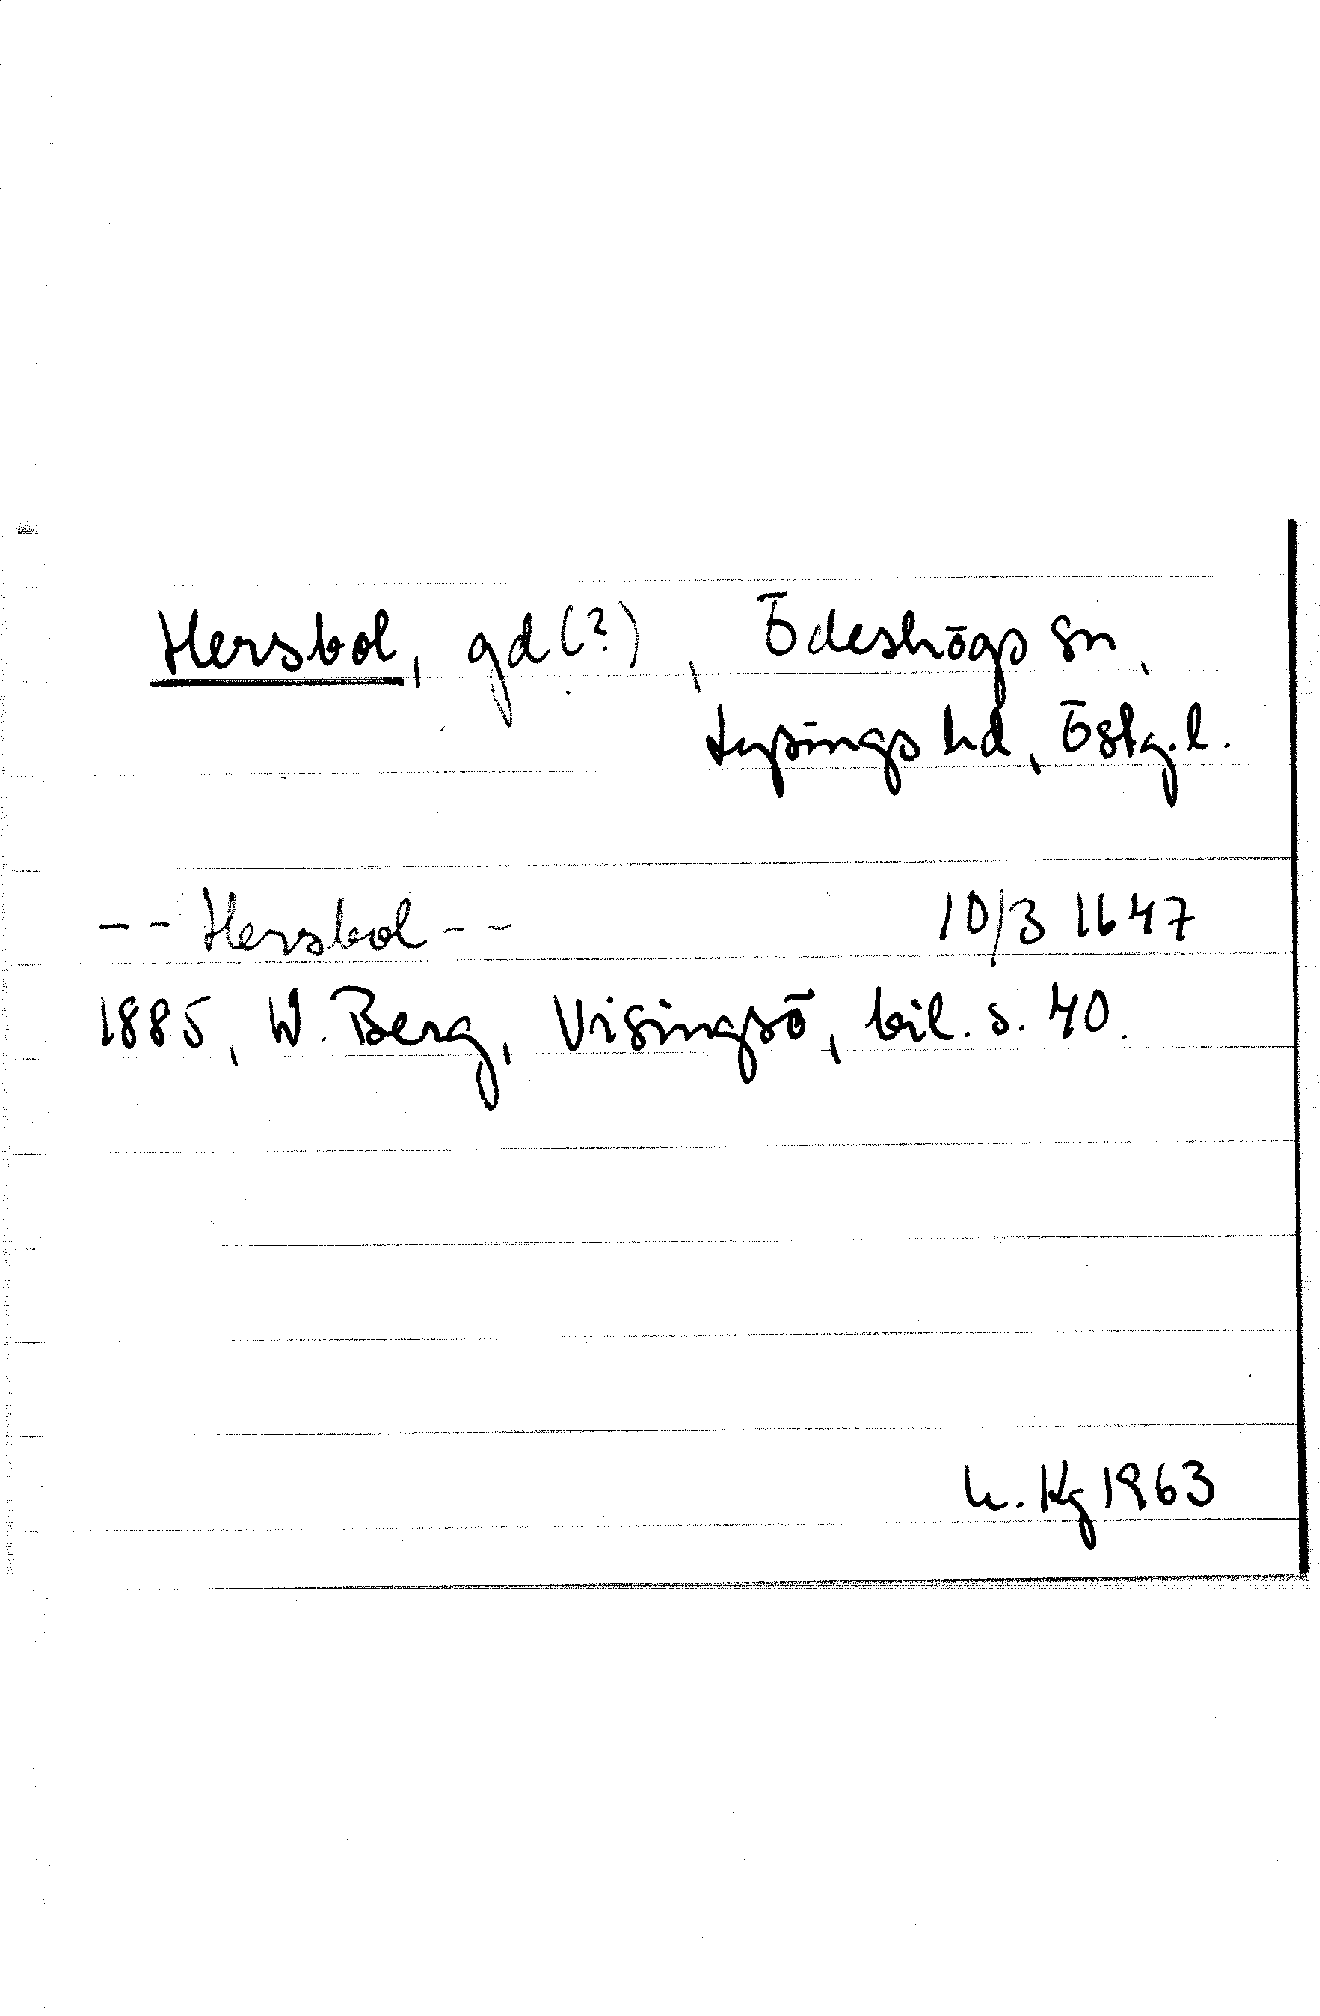 Hersbol, gd(?), Ödeshögs sn,
Lysings hd, Östg.l.
-- Hersbol -- 10/3 1647
1885, W. Berg, Visingsö, bil. s. 40.
Kg 1963